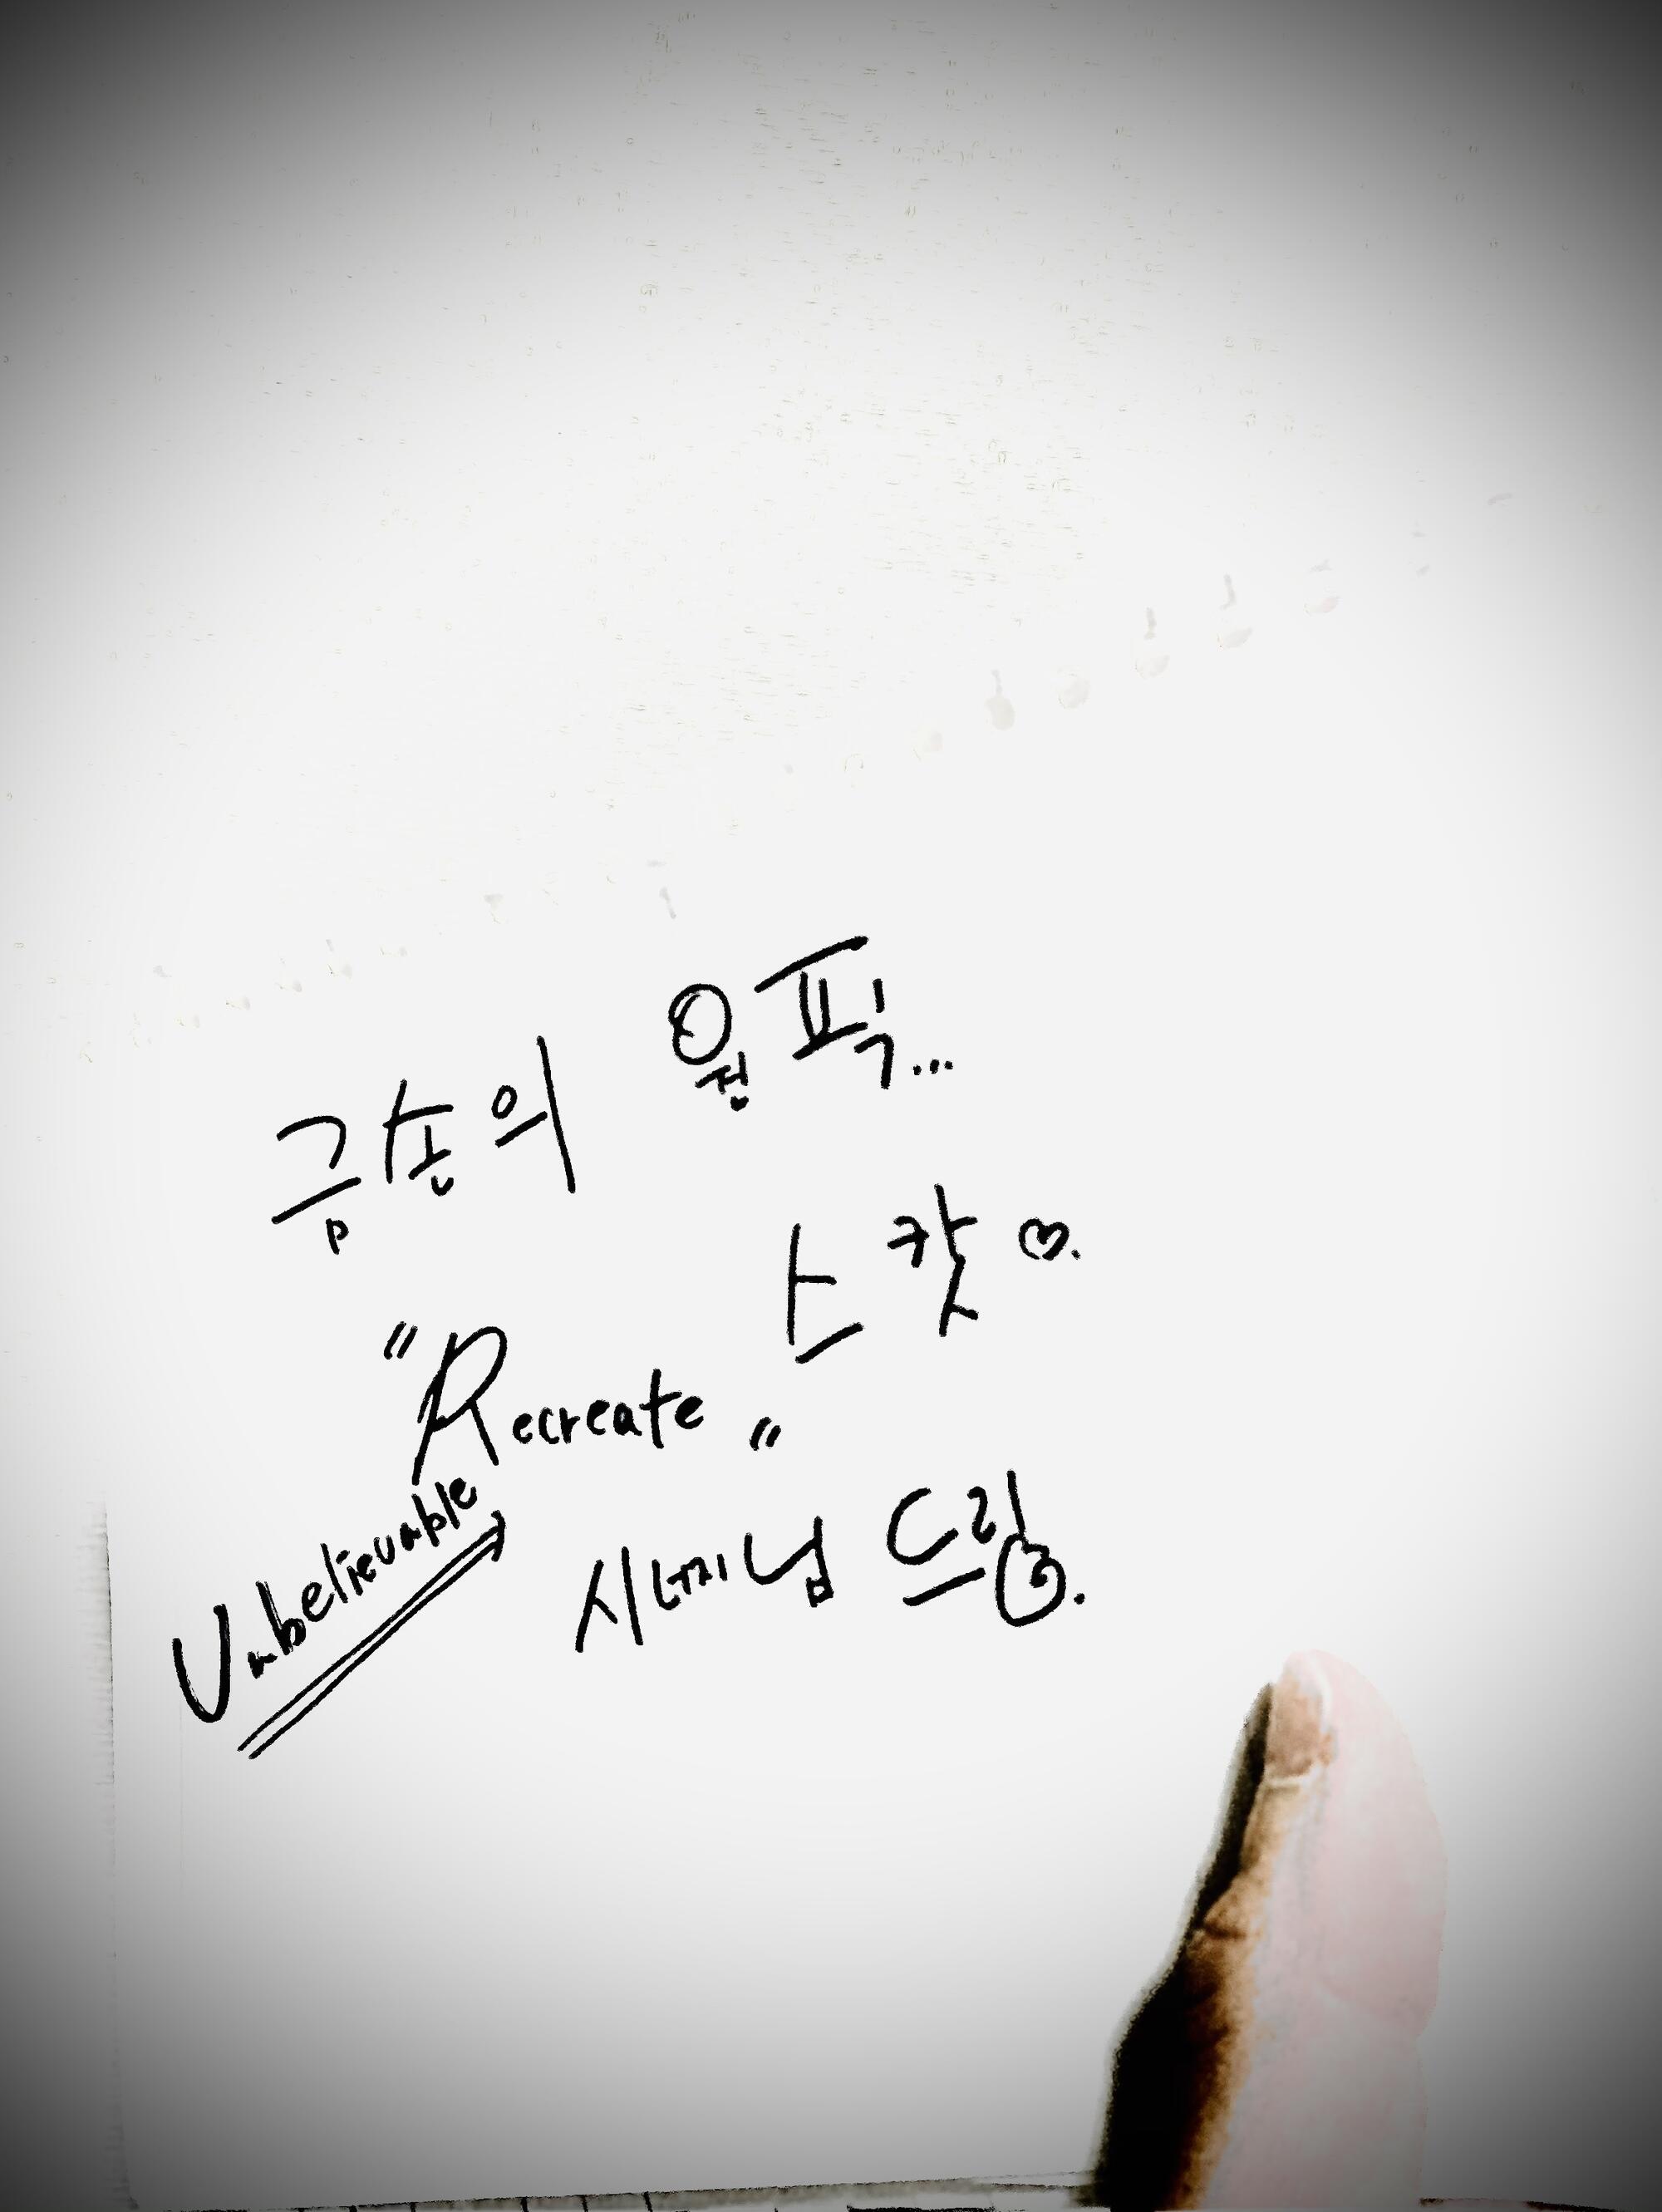 금손의 원픽...
스캇 ♡.
"Recreate"
Unbelievable
시너지님 드림.